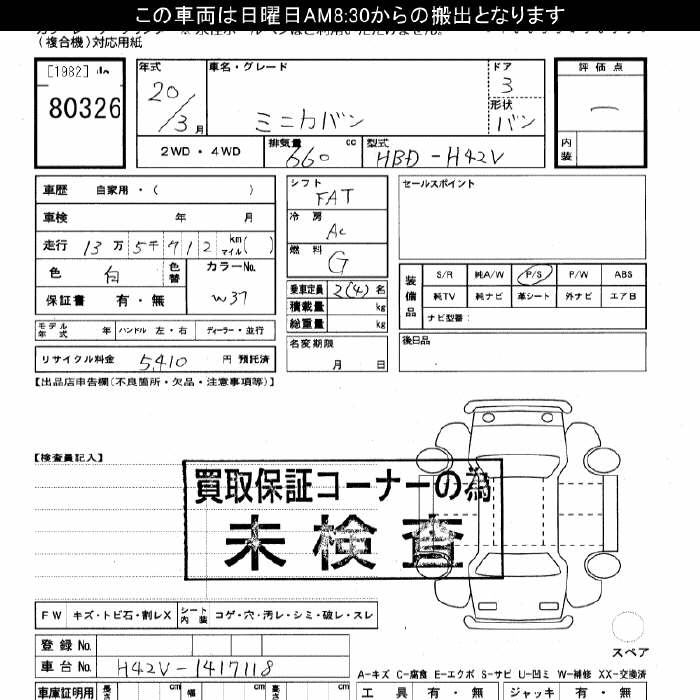 この車両は日曜日AM8:30からの搬出となります
(複合機)対応用紙
[1982]
80326
年式
20/3月
車名・グレード
ミニカバン
ドア
3
形状
バン
評価点
内装
2WD・4WD
排気量
660 cc
型式
HBD-H42V
車歴 自家用・( )
車検 年 月
走行 13万5千912 km マイル( )
色 白 色替
カラーNo.
W37
保証書 有・無
モデル年式 年 ハンドル 左・右 ディーラー・並行
リサイクル料金 5,410 円 預託済
シフト
FAT
冷房
AC
燃料
G
乗車定員 2(4)名
積載量 kg
総重量 kg
名変期限
月 日
セールスポイント
装備品
S/R 純A/W P/S P/W ABS
純TV 純ナビ 革シート 外ナビ エアB
ナビ型番:
後日品
【出品店申告欄(不良箇所・欠品・注意事項等)】
【検査員記入】
買取保証コーナーの為
未検査
FW キズ・トビ石・割レX シート内装 コゲ・穴・汚レ・シミ・破レ・スレ
登録No.
車台No. H42V-1417118
スペア
A-キズ C-腐食 E-エクボ S-サビ U-凹ミ W-補修 XX-交換済
車庫証明用 長さ cm 幅 cm 高さ cm
工具 有・無 ジャッキ 有・無